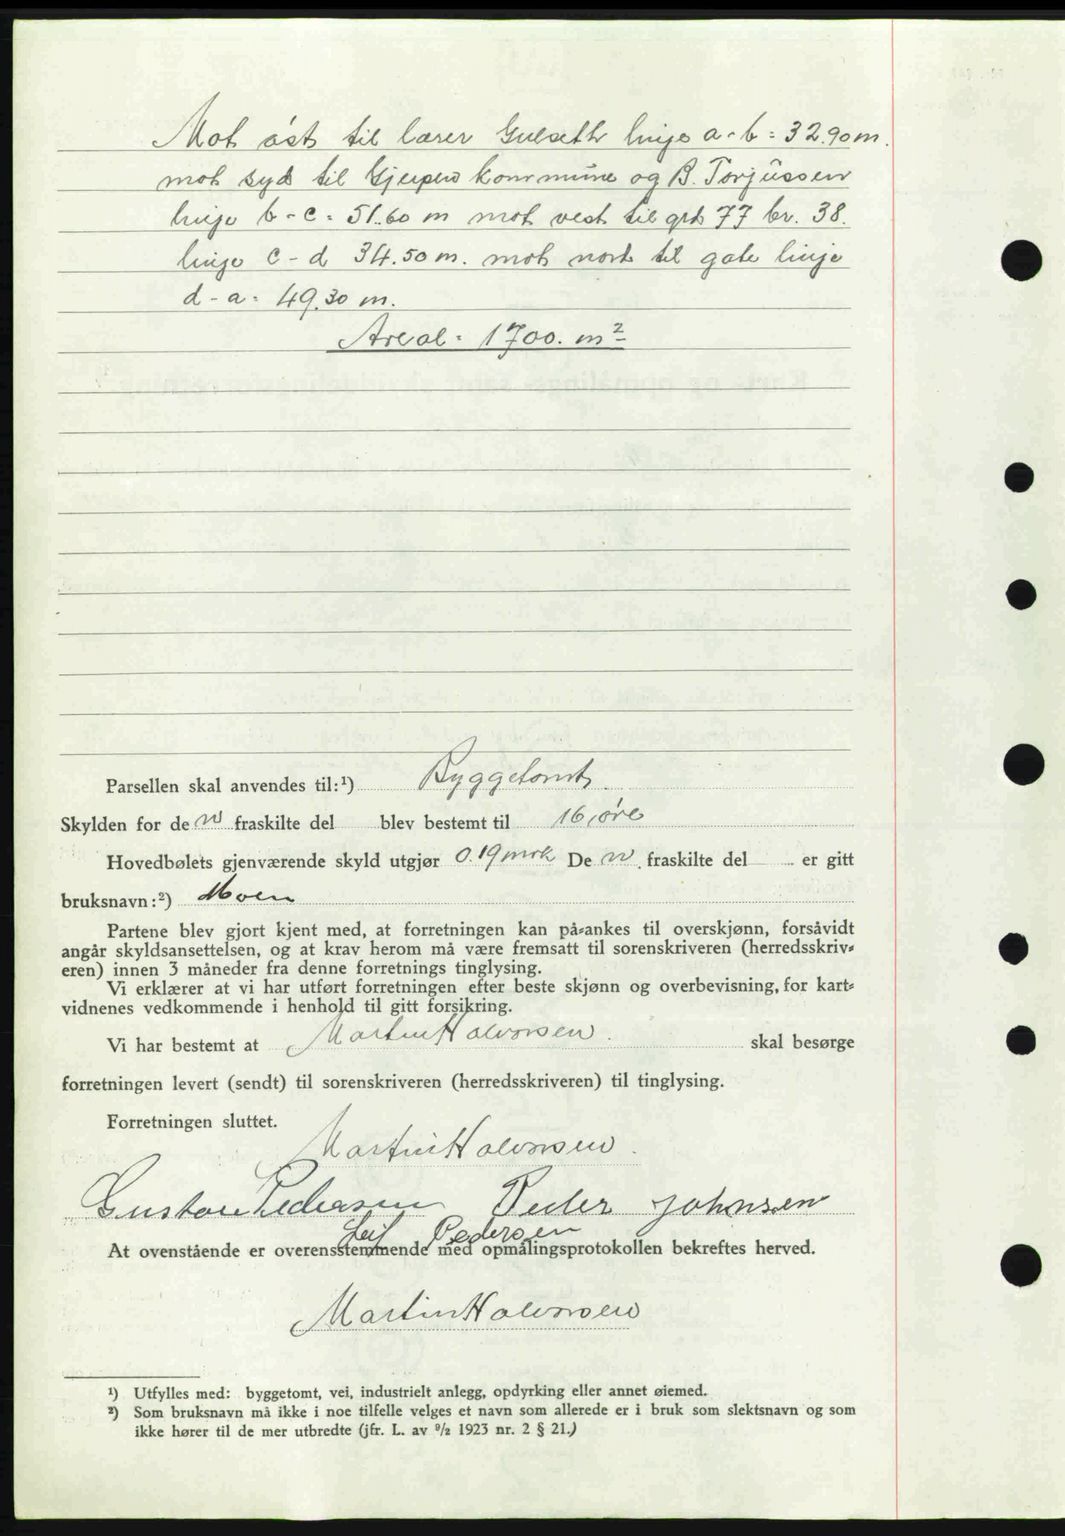 Mot øst til lærer Gulseth linje a-b = 32.90 m.
mot syd til Gjerpen kommune og B. Torjussen
linje b-c = 51.60 m mot vest til grd 77 br. 38.
linje c-d 34.50 m. mot nord til gate linje
d-a = 49.30 m.
Areal = 1700. m²
Parsellen skal anvendes til:¹) Byggetomt.
Skylden for den fraskilte del blev bestemt til 16 øre
Hovedbølets gjenværende skyld utgjør 0.19 mrk De n fraskilte del er gitt
bruksnavn:²) Moen
Partene blev gjort kjent med, at forretningen kan på-ankes til overskjønn, forsåvidt
angår skyldsansettelsen, og at krav herom må være fremsatt til sorenskriveren (herredsskriv-
eren) innen 3 måneder fra denne forretnings tinglysing.
Vi erklærer at vi har utført forretningen efter beste skjønn og overbevisning, for kart-
vidnenes vedkommende i henhold til gitt forsikring.
Vi har bestemt at Martin Halvorsen. skal besørge
forretningen levert (sendt) til sorenskriveren (herredsskriveren) til tinglysing.
Forretningen sluttet.
Martin Halvorsen.
Gustav Pedersen Peder Johnsen
Leif Pedersen
At ovenstående er overensstemmende med opmålingsprotokollen bekreftes herved.
Martin Halvorsen
¹) Utfylles med: byggetomt, vei, industrielt anlegg, opdyrking eller annet øiemed.
²) Som bruksnavn må ikke i noe tilfelle velges et navn som allerede er i bruk som slektsnavn og som
ikke hører til de mer utbredte (jfr. L. av 9/2 1923 nr. 2 § 21.)